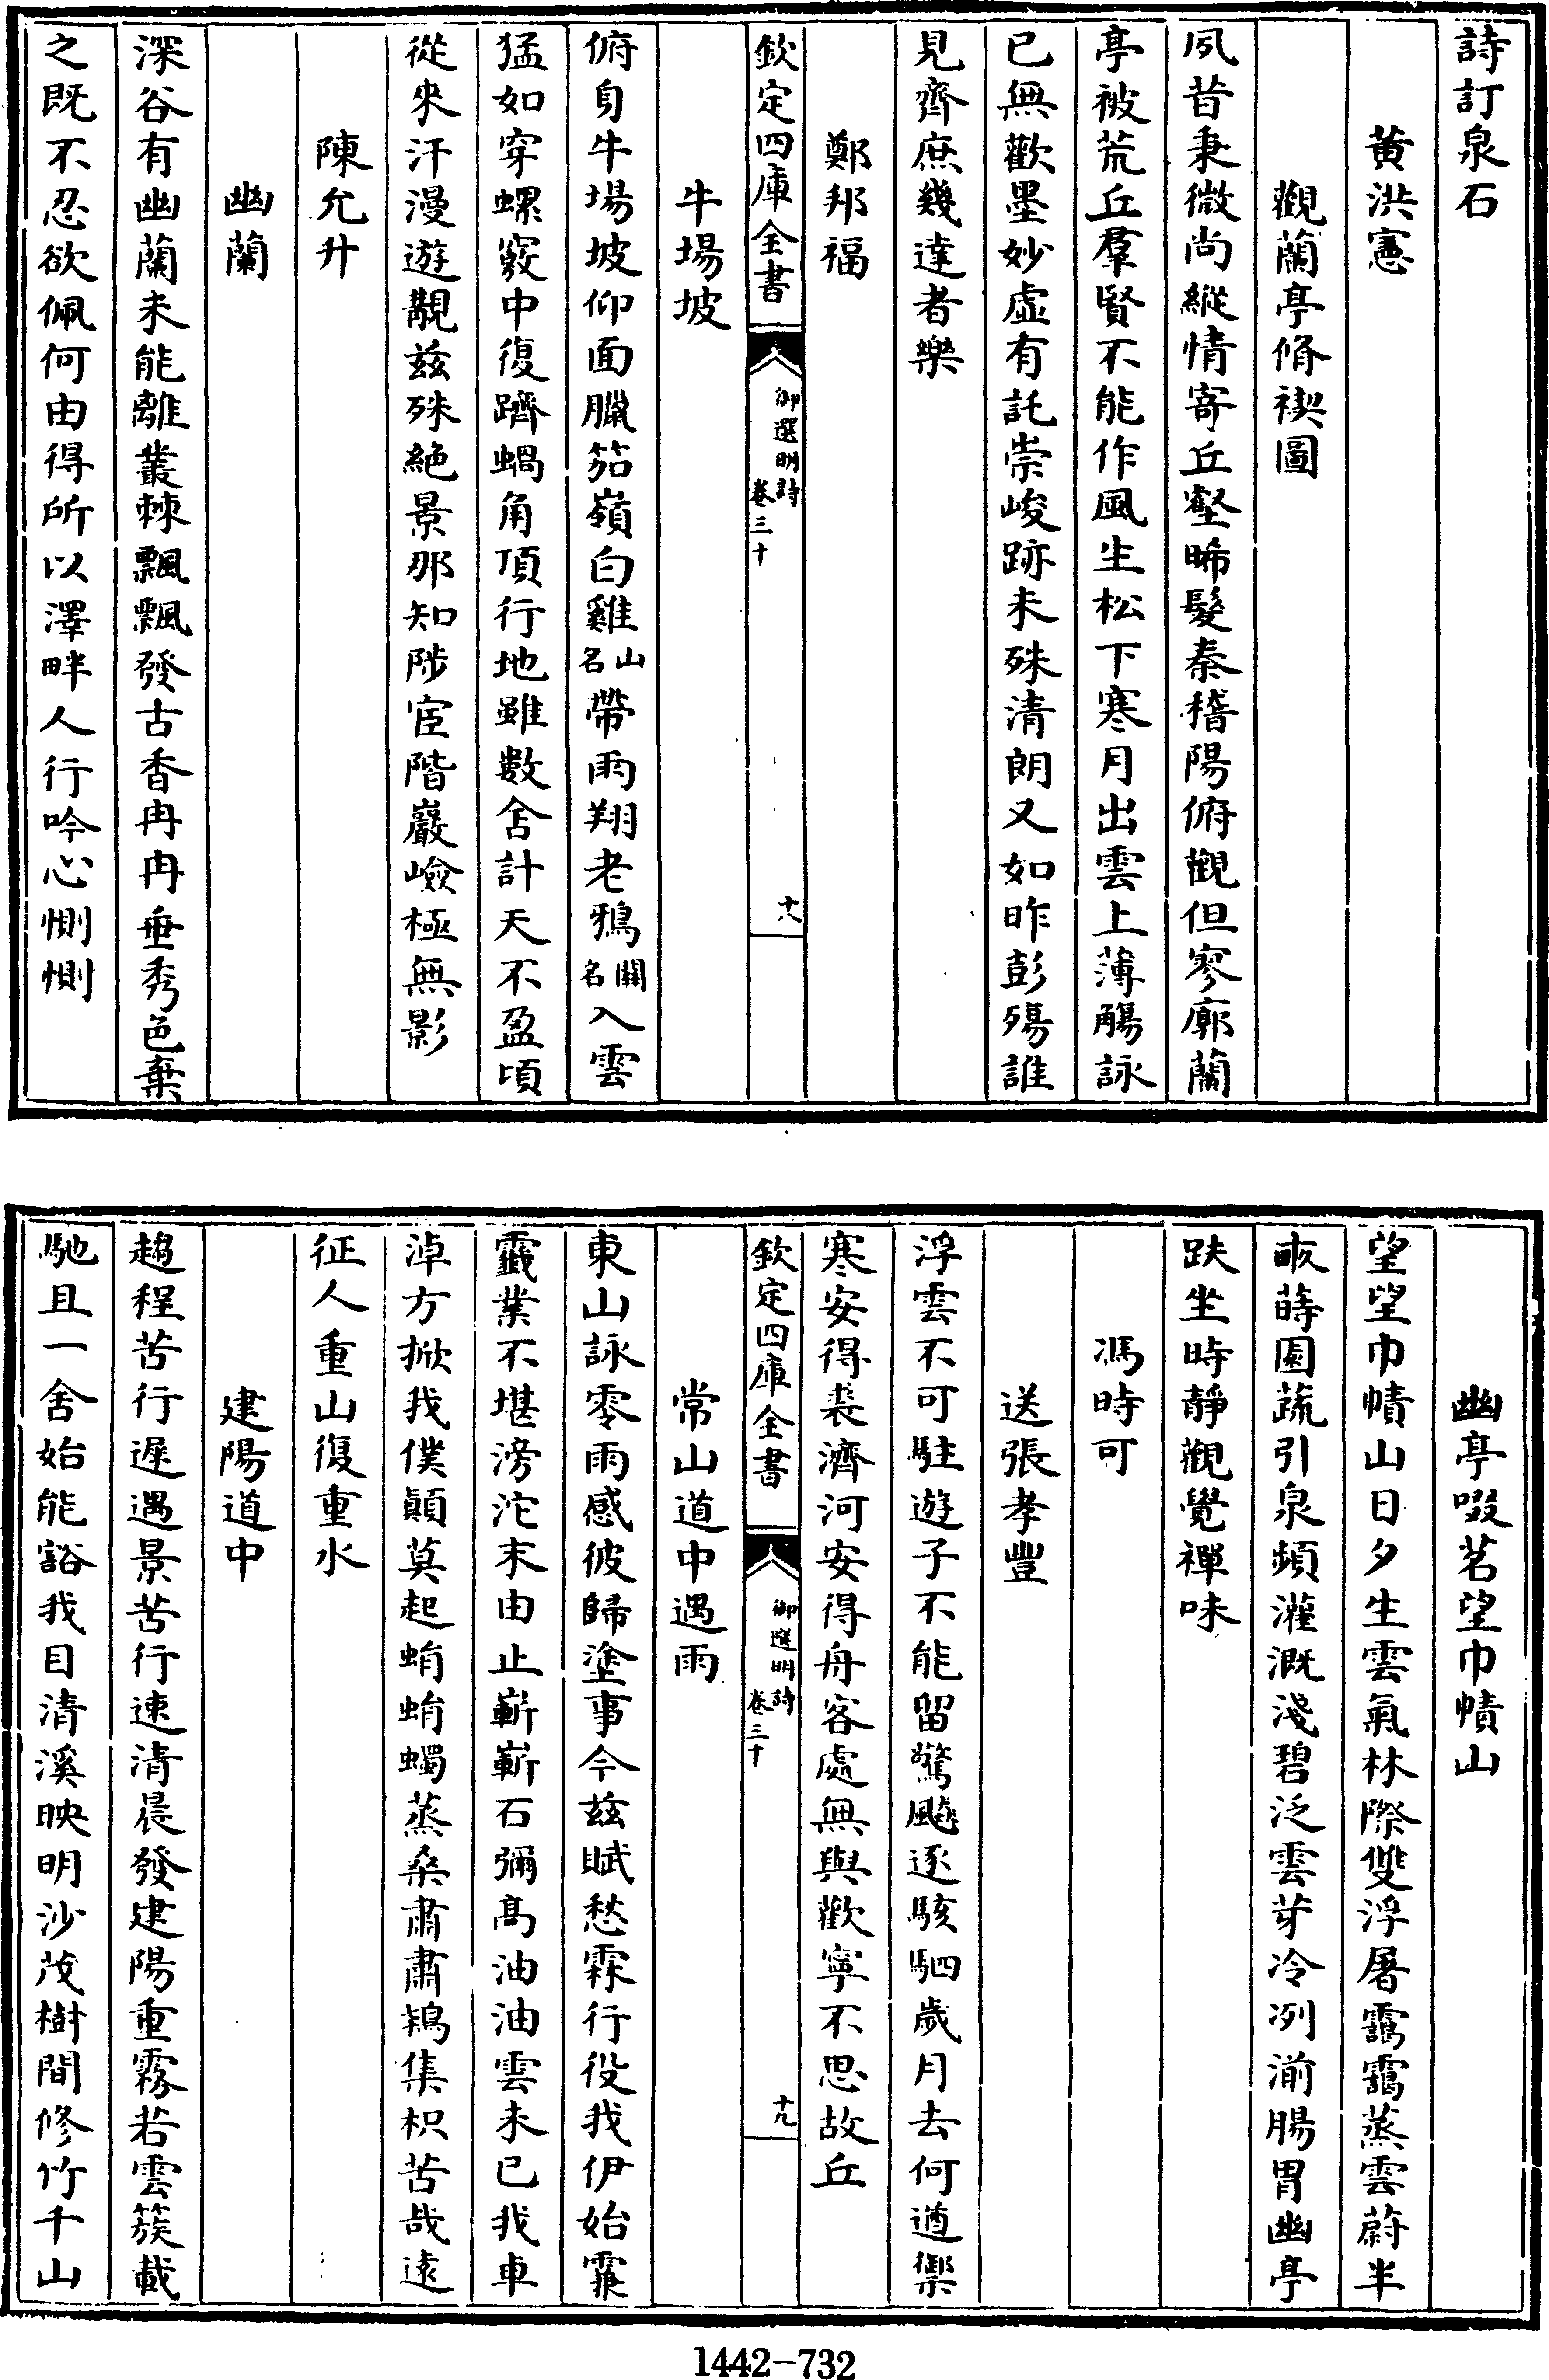 詩訂泉石
黃洪憲
觀蘭亭脩禊圖
夙昔秉微尚縱情寄丘壑晞髮秦稽陽俯觀但寥廓蘭
亭被荒丘羣賢不能作風生松下寒月出雲上薄觴詠
已無歡墨妙虛有託崇峻跡未殊清朗又如昨彭殤誰
見齊庶幾達者樂
鄭邦福
欽定四庫全書
御選明詩
卷三十
十八
牛場坡
俯身牛場坡仰面臘笳嶺白雞山名帶雨翔老鴉關名入雲
猛如穿螺竅中復躋蝸角頂行地雖數舍計天不盈頃
從來汗漫遊覯茲殊絶景那知陟宦階巖嶮極無影
陳允升
幽蘭
深谷有幽蘭未能離叢棘飄飄發古香冉冉垂秀色棄
之既不忍欲佩何由得所以澤畔人行吟心惻惻
幽亭啜茗望巾幘山
望望巾幘山日夕生雲氣林際雙浮屠靄靄蒸雲蔚半
畝蒔園蔬引泉頻灌溉淺碧泛雲芽冷冽湔腸胃幽亭
趺坐時靜觀覺禪味
馮時可
送張孝豐
浮雲不可駐遊子不能留驚飈逐駭駟歲月去何遒禦
寒安得裘濟河安得舟客處無與歡寧不思故丘
欽定四庫全書
御選明詩
卷三十
十九
常山道中遇雨
東山詠零雨感彼歸塗事今茲賦愁霖行役我伊始霢
靈業不堪滂沱末由止嶄嶄石彌高油油雲未已我車
淖方掀我僕顛莫起蜎蜎蠋蒸桑肅肅鴇集枳苦哉遠
征人重山復重水
建陽道中
趨程苦行遲遇景苦行速清晨發建陽重霧若雲簇載
馳且一舍始能豁我目清溪映明沙茂樹間修竹千山
1442-732